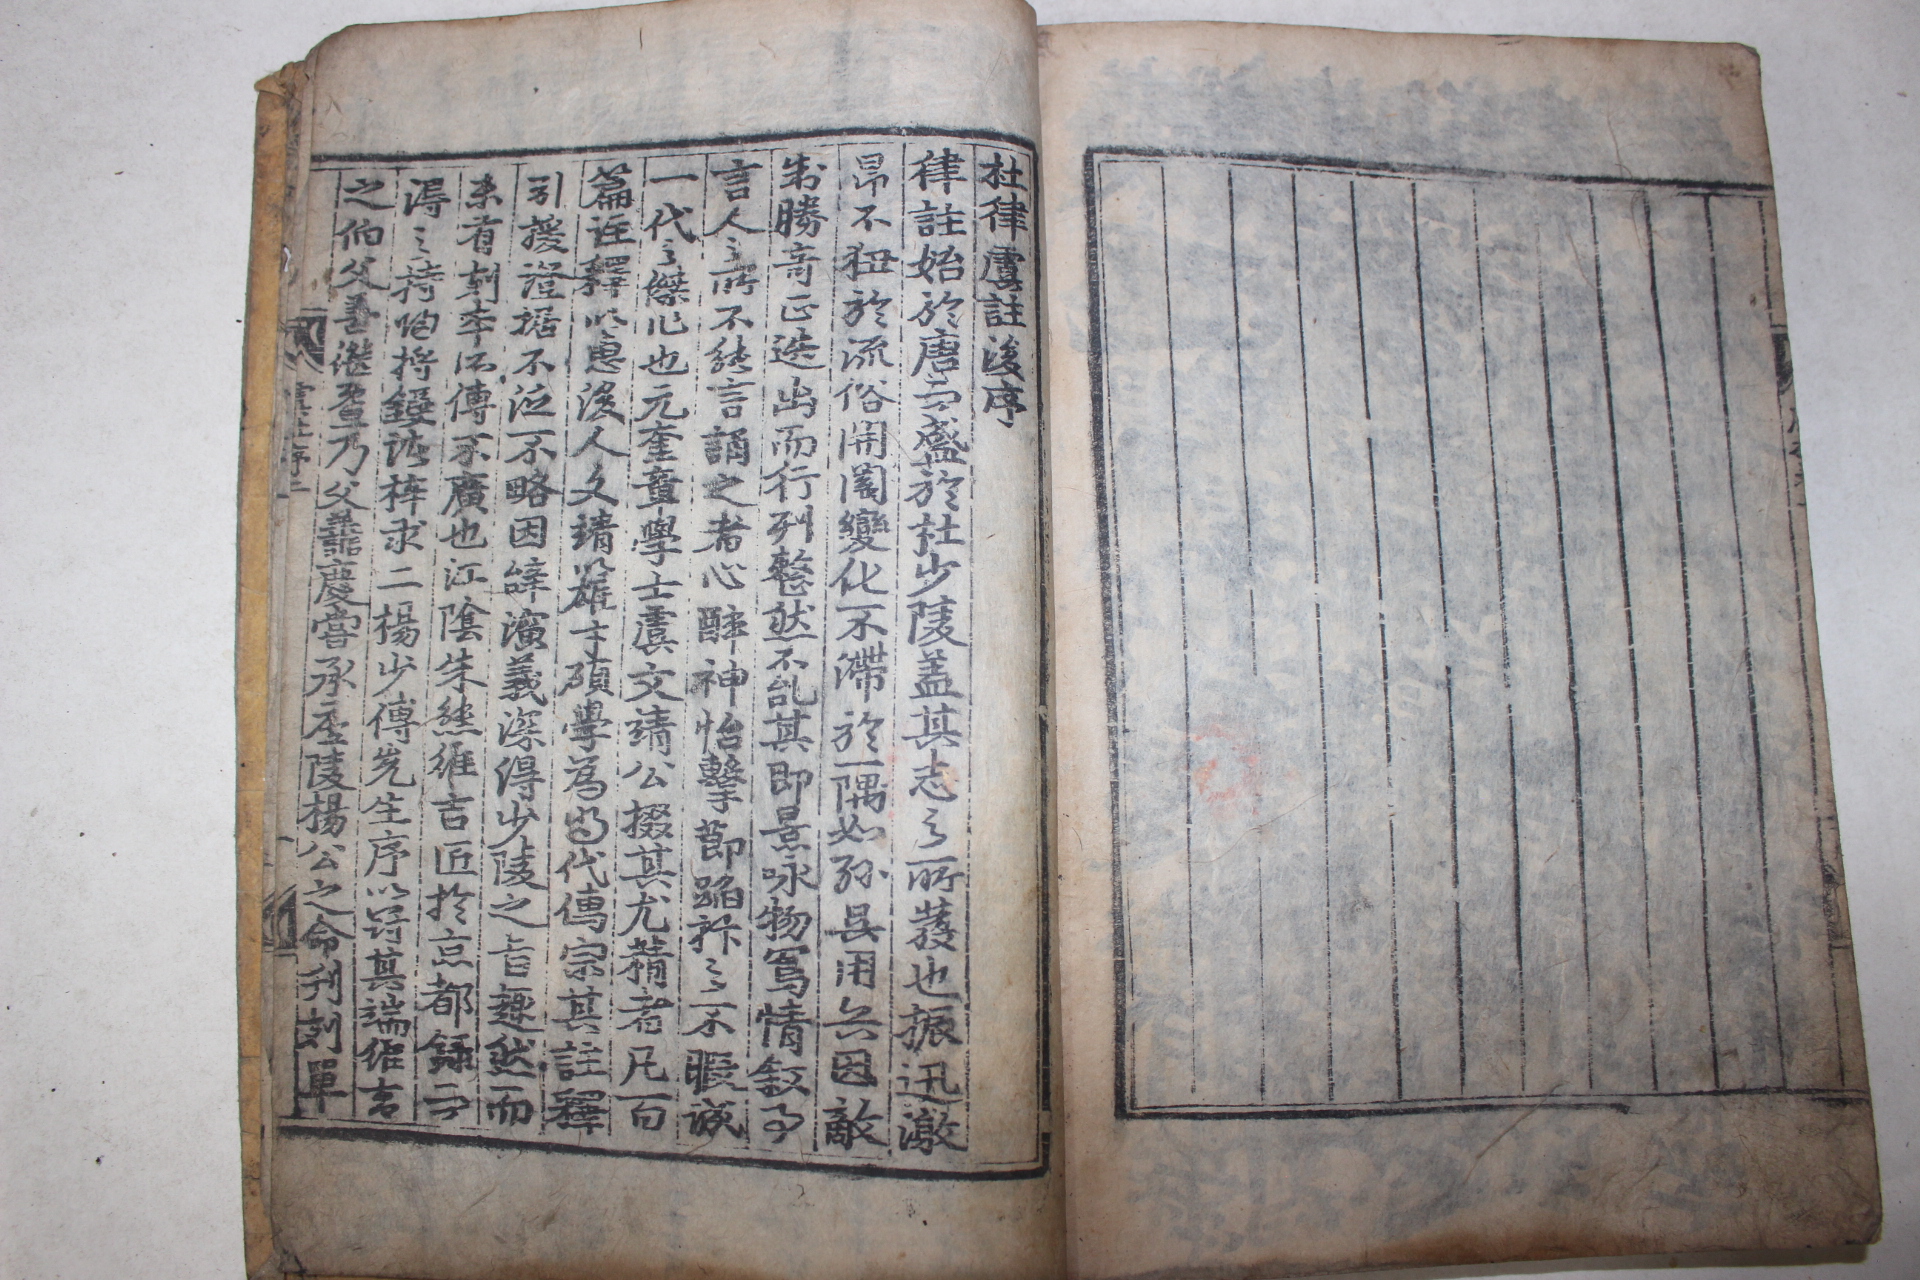 杜律虞註後序
律註始於唐而盛於杜少陵蓋其志之所發也振迅激
昂不狃於流俗開闔變化不滯於一隅如孫吳用兵因敵
制勝奇正迭出而行列整然不乱其即景咏物寫情叙事
言人之所不能言誦之者心醉神怡擊節蹈舞之不暇誠
一代之傑作也元奎章學士虞文靖公掇其尤精者凡百
篇註釋以惠後人文靖以雄才碩學為當代儒宗其註釋
引援證據不泛不略因辭演義深得少陵之旨趣然而
未有刻本所傳不廣也江陰朱熊維吉近於京都錄而
得之持歸將鋟諸梓求二楊少傅先生序以冠其端維吉
之伯父善繼曁乃父善慶嘗承廬陵楊公之命刋刻單
虞註序二